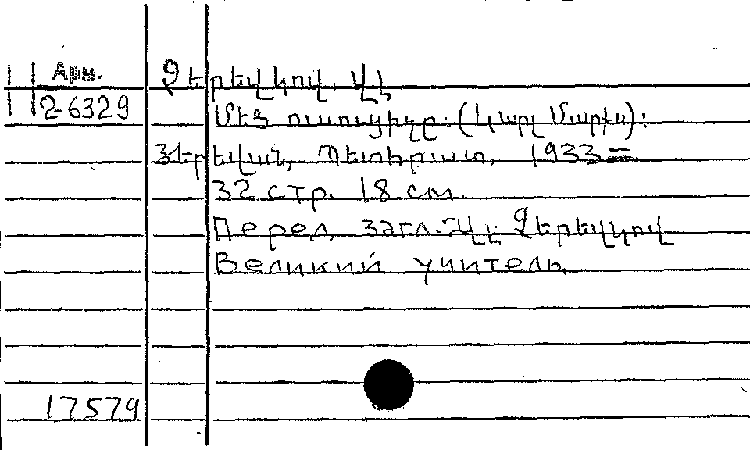 Арм. Չերեվկով, Վլ.
2-6329 Մեծ ուսուցիչը: (Կարլ Մարքս):
Երեվան, Պետհրատ, 1933
32 стр. 18 см.
Перед загл.: Վլ. Չերեվկով
Великий учитель
17579